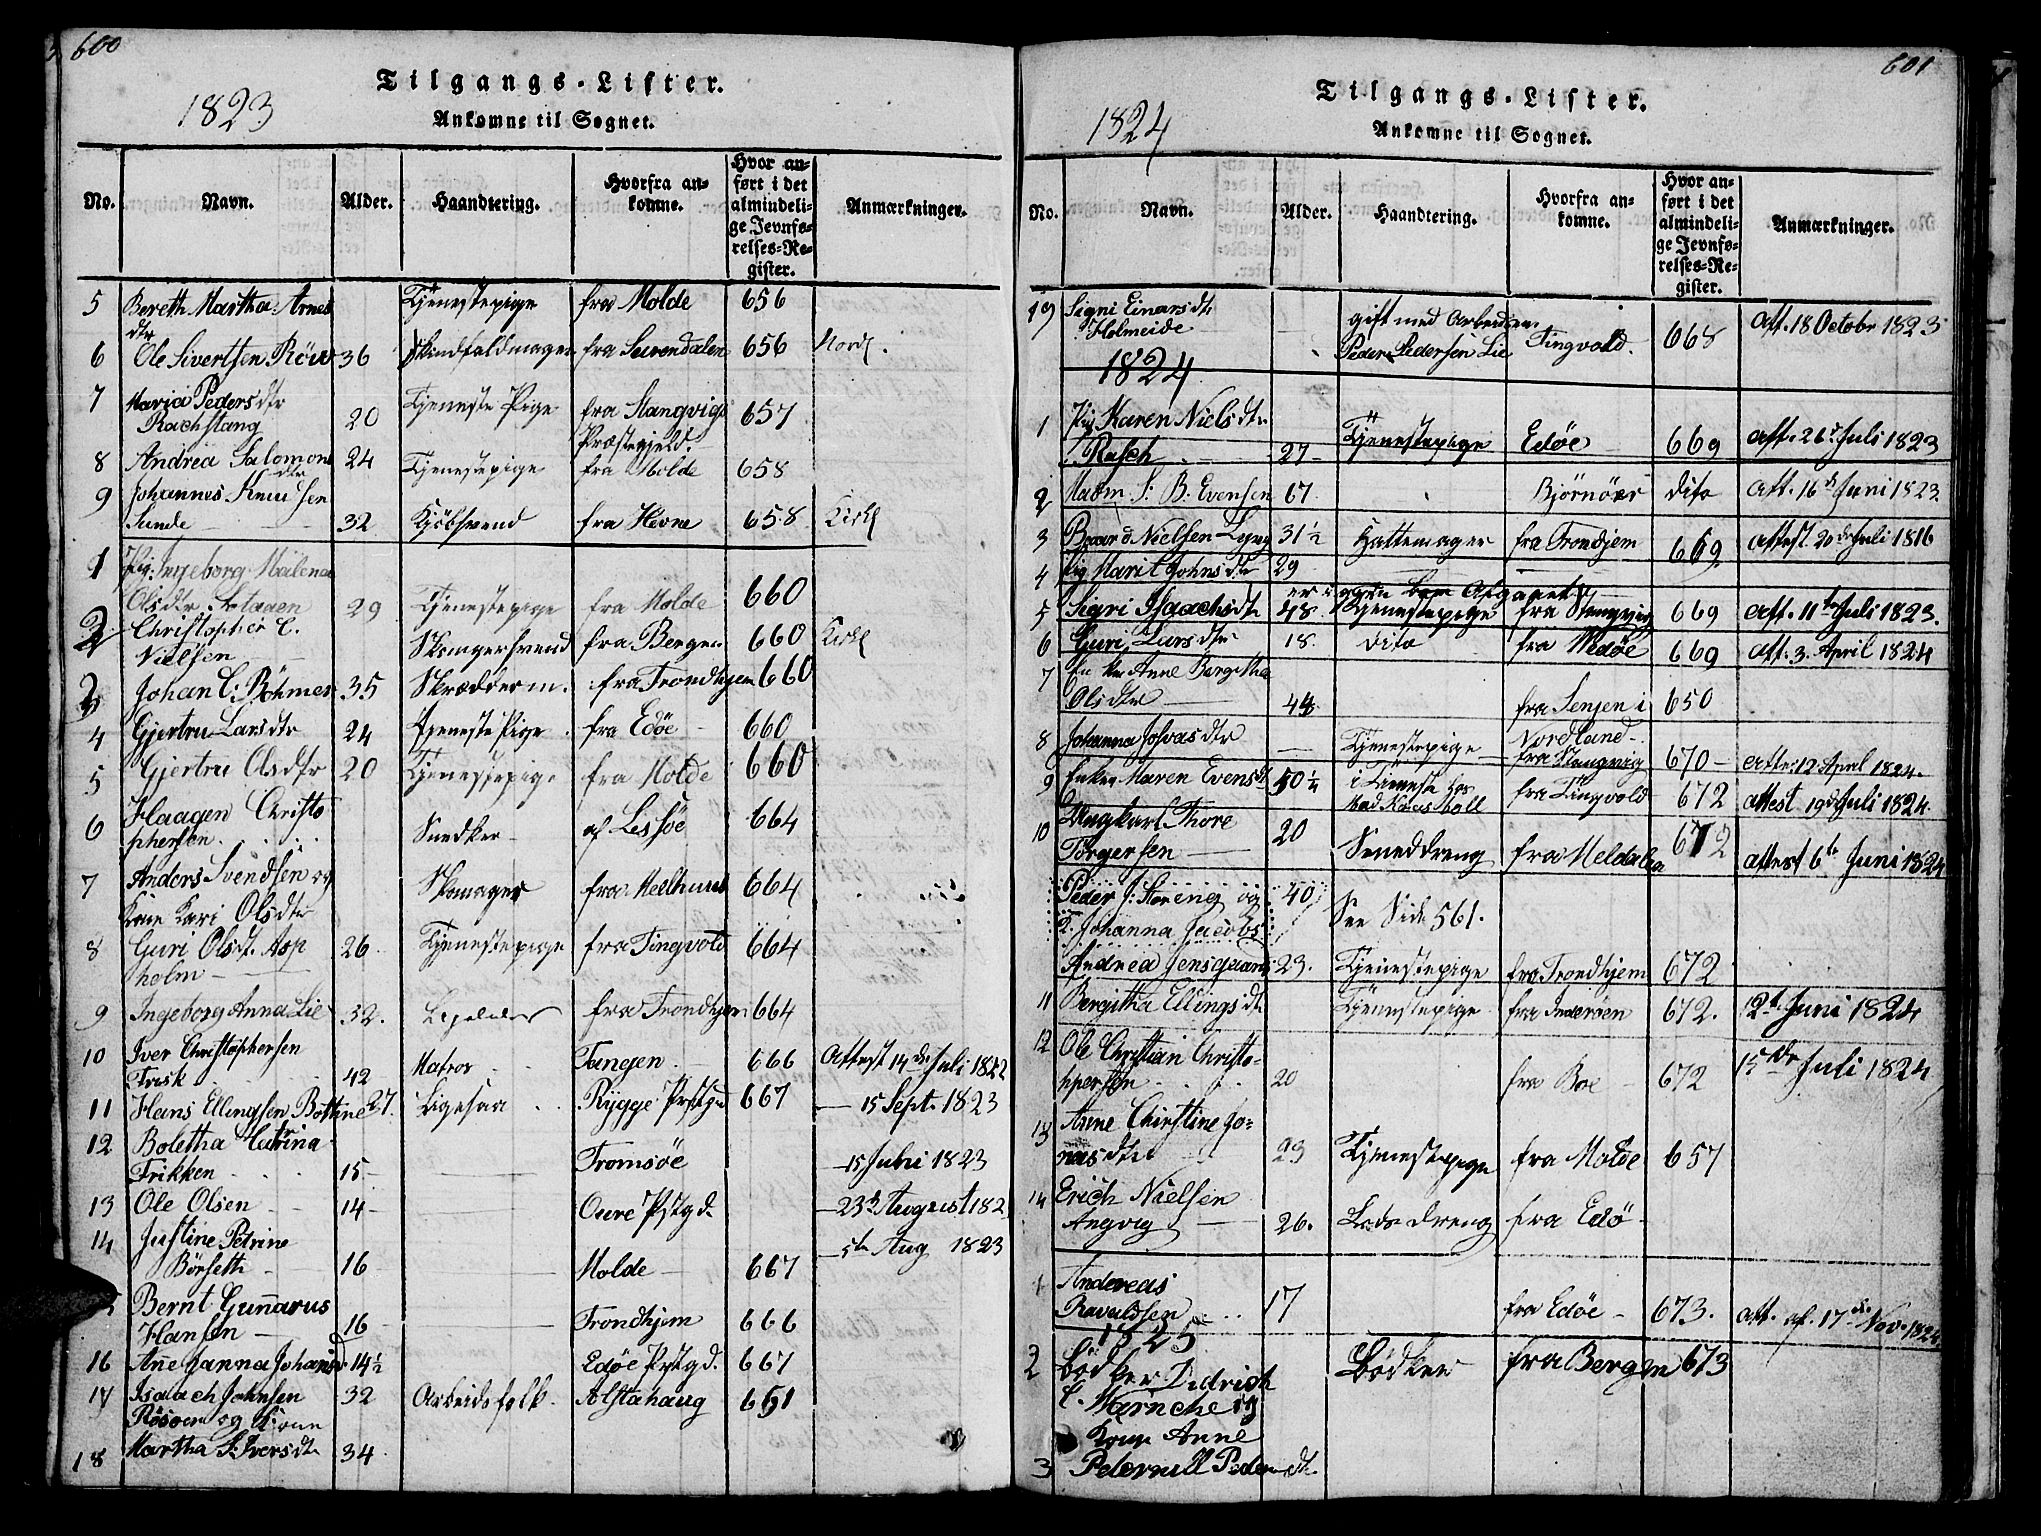 600
Tilgangs-Lister.
1823
Ankomne til Sognet.
No. Navn. Alder. Haandtering. Hvorfra ankomne. Hvor anført i det almindelige Jevnførelses-Register. Anmærkninger.
5 Bereth Martha Arnes Tjenestepige fra Molde 656
dtr
6 Ole Sivertsen 36 fra Surendalen 656
7 Maria Pedersdtr Tjeneste Pige fra Stangvigs 657
20 Præstegjeld.
8 Andrea Salomons 24 Tjenestepige fra Molde 658
dtr
9 Johannes Knudsen
Sunde 32 fra Hevne 658
1 Pig. Ingeborg Malena
Olsdtr 29 Tjenestepige fra Molde 660
2 Christopher C.
Nielsen fra Bergen 660
3 Johan C. Böhmer 35 Skrædderm. fra Trondhjem 660
4 Gjertru Larsdtr 24 Tjeneste Pige fra Edöe 660
5 Gjertru Olsdtr 20 Tjenestepige fra Molde 660
6 Haagen Christo
phersen Snedker af Lessöe 664
7 Anders Svendsen og Skomager fra Meelhuus 664
Kone Kari Olsdtr
8 Guri Olsdt. Asp 26 Tjenestepige fra Tingvold 664
holm
9 Ingeborg Anna Lie 32. fra Trondhjem 664
10 Iver Christophersen
Frisk 42 Matros Tangen 666 Attest 14de Juli 1822
11 Hans Ellingsen 27. Ligesaa Rygge Prstgd 667 15 Sept. 1823
12 Boletha Catrina
Frikken 15 Tromsöe 15 Juni 1823
13 Ole Olsen 14 Oure Pstgd. 23de August 182
14 Justine Petrine 5te Aug 1823
Börseth 16 Molde 667
Bernt Gunnarus
Hansen 16 Trondhjem 666
16 Ane Janna Johansd 14½ Edöe Prstgd. 667
17 Isaach Johnsen 32 Arbeidsfolk. Alstahaug 651
og Kone
18 Martha S. Iversdtr 34
601
Tilgangs-Lister.
1824
Ankomne til Sognet.
No. Navn. Alder. Haandtering. Hvorfra ankomne. Hvor anført i det almindelige Jevnførelses-Register. Anmærkninger.
19 Signi Einarsdtr gift med Att. 18 Octobr 1823
Holmeide Peder Pedersen Lie Tingvold. 668
1824
1 Pig Karen Nielsdtr
Rasch 27 Tjenestepige Edöe 669 att. 26de Juli 1823
2 Mad. S. B. Evensen 67 Bjørnöer dito att. 16d Juni 1823.
3 Baard Nielsen 31½ Hattemager fra Trondhjem 669 attest 20de Juli 1816
4 Pig Marit Johnsdtr 29
er igjen
5 Sigri Isaachsdtr 48. Tjenestepige fra Stangvig 669 att. 11te Juli 1823.
6 Guri Larsdtr 18. dito fra Edöe 669 att. 3. April 1824
7 Anne Bergitha
Olsdtr 48 fra Senjen i 650
Nordland
8 Johanna Tjenestepige fra Stangvig 670 atte: 12 April 1824.
9 Enken Maren Evensdt 50½ i Tjeneste hos fra Tingvold 672 attest 19d Juli 1824.
10 Ungkarl Thore 20
Torgersen fra Meldalen 672 attest 6te Juni 1824
Peder J. Störeng og 40
Johanna Jacobs See Side 561.
Andrea Jensgaard 23. Tjenestepige fra Trondhjem 672
11 Bergitha Ellingsdtr Tjenestepige fra Inderöen 672. 12t Juni 1824
12 Ole Christian Christo-
phersen 20 fra Boe 672 15de Juli 1824
13 Anne Christine Jo-
nasdtr 23 Tjenestepige fra Molde 657
14 Erich Nielsen
Angvig 26. fra Edö
1 Andereas
17 fra Edöe 673. att. af. 17de Nov. 1824
1825
2 Bödker Didrich Bödker fra Bergen 673
C. og
Kone Anne
3 Peternill Pedersdt.